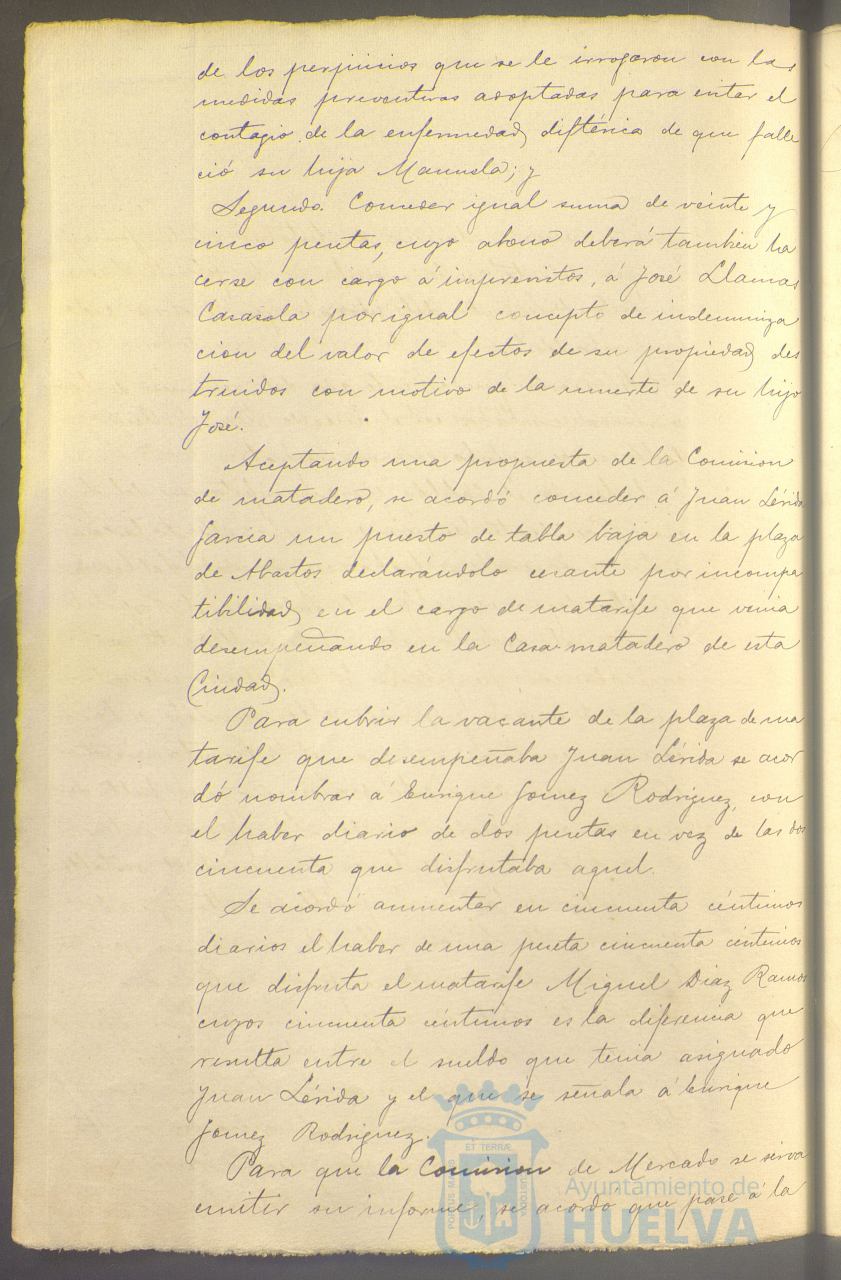 de los perjuicios que se le irrogaron con las
medidas preventivas adoptadas para evitar el
contagio de la enfermedad diftérica de que falle
ció su hija Manuela; y
Segundo. Conceder igual suma de veinte y
cinco pesetas, cuyo abono deberá tambien ha
cerse con cargo á imprevistos, á José Llamas
Casasola por igual concepto de indemniza
cion del valor de efectos de su propiedad des
truidos con motivo de la muerte de su hijo
José.
Aceptando una propuesta de la Comision
de matadero, se acordó conceder á Juan Lérida
Garcia un puesto de tabla baja en la plaza
de Abastos declarándolo cesante por incompa
tibilidad en el cargo de matarife que venia
desempeñando en la Casa-matadero de esta
Ciudad.
Para cubrir la vacante de la plaza de ma
tarife que desempeñaba Juan Lérida se acor
dó nombrar á Enrique Gomez Rodriguez, con
el haber diario de dos pesetas en vez de las dos
cincuenta que disfrutaba aquel.
Se acordó aumentar en cincuenta céntimos
diarios el haber de una peseta cincuenta céntimos
que disfruta el matarife Miguel Diaz Ramos
cuyos cincuenta céntimos es la diferencia que
resulta entre el sueldo que tenia asignado
Juan Lérida y el que se señala á Enrique
Gomez Rodriguez.
Para que la Comision de Mercado se sirva
emitir su informe, se acordo que pase á la
PORTUS MARIS ET TERRÆ CUSTODIA
Ayuntamiento de
HUELVA